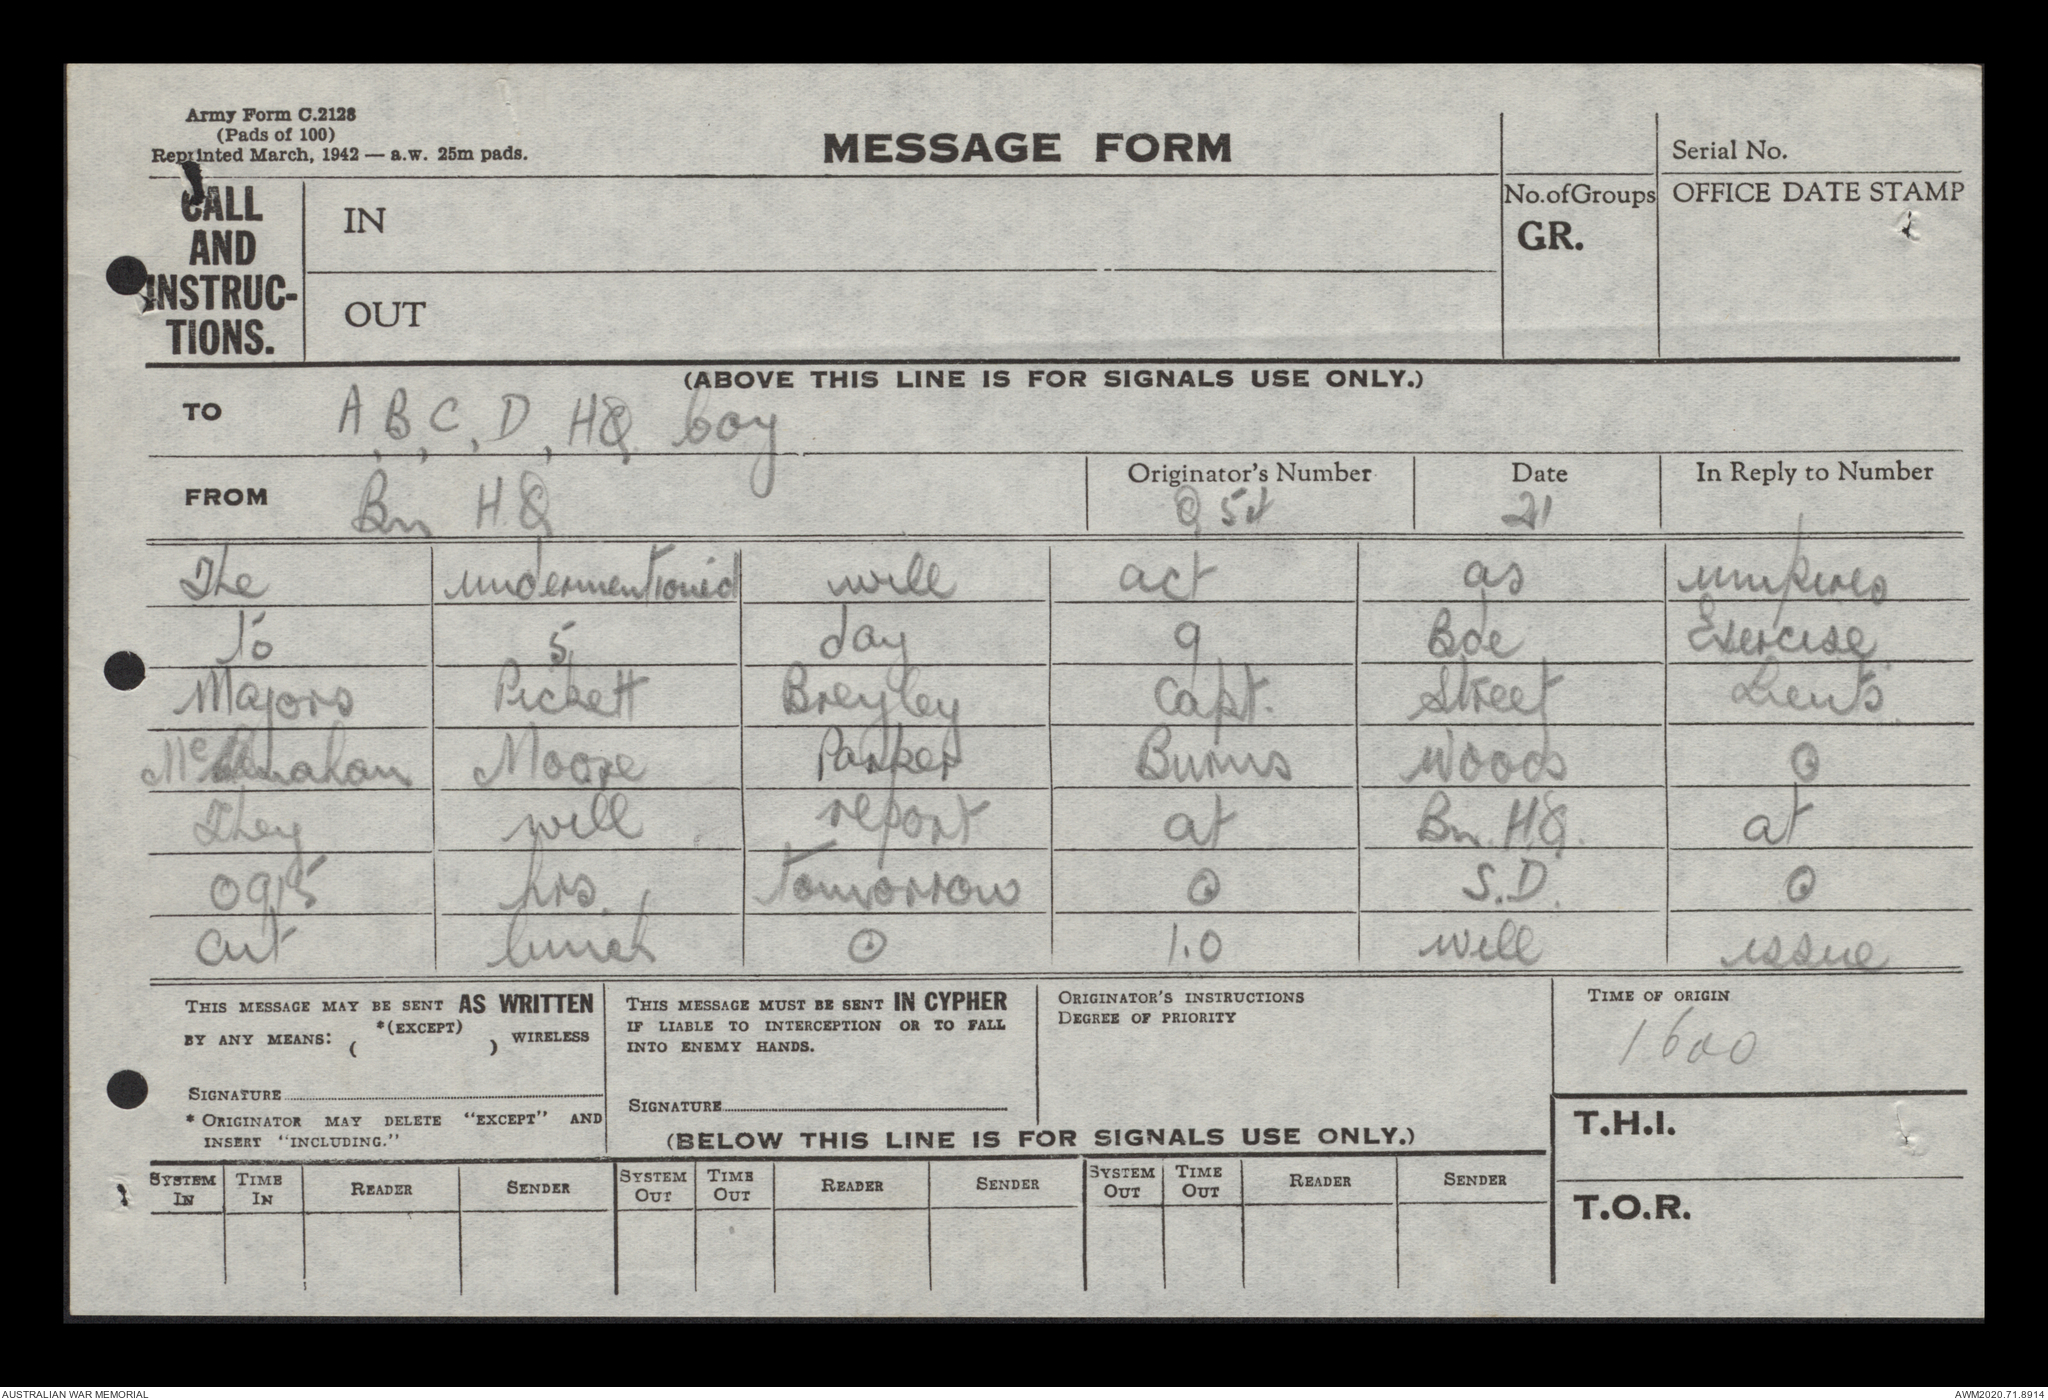 Army Form C.2128
(Pads of 100)
Reprinted March, 1942 — a.w. 25m pads.
MESSAGE FORM
Serial No.
CALL AND INSTRUC-TIONS.
IN
No. of Groups
GR.
OFFICE DATE STAMP
OUT
(ABOVE THIS LINE IS FOR SIGNALS USE ONLY.)
TO A, B, C, D, HQ coy
FROM Bn HQ
Originator's Number
Q 54
Date
21
In Reply to Number
The undermentioned will act as umpires
to 5 day 9 Bde Exercise
Majors Pickett Breyley Capt. Street Lieuts
Moore Parker Burns Woods O
They will report at Bn. HQ. at
0915 hrs. tomorrow O S.D. O
Cut lunch O I.O will issue
THIS MESSAGE MAY BE SENT AS WRITTEN
BY ANY MEANS: *(EXCEPT) ( ) WIRELESS
SIGNATURE
* ORIGINATOR MAY DELETE "EXCEPT" AND
INSERT "INCLUDING."
THIS MESSAGE MUST BE SENT IN CYPHER
IF LIABLE TO INTERCEPTION OR TO FALL
INTO ENEMY HANDS.
SIGNATURE
ORIGINATOR'S INSTRUCTIONS
DEGREE OF PRIORITY
TIME OF ORIGIN
1600
(BELOW THIS LINE IS FOR SIGNALS USE ONLY.)
T.H.I.
SYSTEM IN TIME IN READER SENDER SYSTEM OUT TIME OUT READER SENDER SYSTEM OUT TIME OUT READER SENDER
T.O.R.
AUSTRALIAN WAR MEMORIAL
AWM2020.71.8914